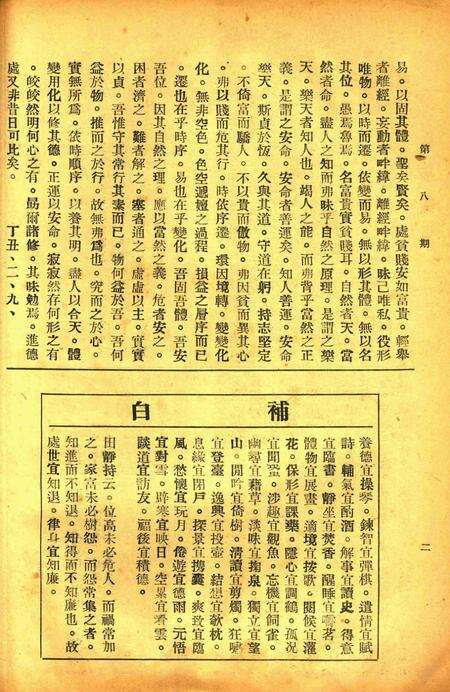 第八期
二
易。以固其體。聖矣賢矣。處貧賤安如富貴。輕舉
者離經。妄動者畔緯。離經畔緯。昧己唯私。役形
唯物。以時而遷。依變而易。無以形其體。無以名
其位。愚焉魯焉。名富貴實貧賤耳。自然者天。當
然者命。盡人之知而弗昧乎自然之原理。是謂之樂
天。樂天者知人也。竭人之能。而弗背乎當然之正
義。是謂之安命。安命者善運矣。知人善運。安命
樂天。斯貞於恆。久與其道。守道在躬。持志堅定
。不倚富而驕人。不以貴而傲物。弗因貧而異其心
。弗以賤而危其行。時依序遷。環因境轉。變變化
化。無非空色。色空遞嬗之過程。損益之層序而已
。遷也在乎時序。易也在乎變化。吾固吾體。吾安
吾位。因其自然之理。應以當然之義。危者安之。
困者濟之。難者解之。塞者通之。虛虛以主。實實
以貞。吾惟守其常行其素而已。物何益於吾。吾何
益於物。推而之於行。故無弗為也。究而之於心。
實無所為。依時順序。以養其明。盡人以合天。體
變用化以修其德。正運以安命。寂寂然存何形之有
。皎皎然明何心之有。勗爾諸修。其味勉焉。進德
處又非昔日可比矣。 丁丑、二、九、
補白
養德宜操琴。鍊智宜彈棋。遣情宜賦
詩。輔氣宜酌酒。解事宜讀史。得意
宜臨書。靜坐宜焚香。醒睡宜嘗茗。
體物宜展畫。適境宜按歌。閱候宜灌
花。保形宜課藥。隱心宜調鶴。孤況
宜聞蛩。涉趣宜觀魚。忘機宜飼雀。
幽尋宜藉草。淡味宜掬泉。獨立宜望
山。閒吟宜倚樹。清談宜剪燭。狂嘯
宜登臺。逸興宜投壺。結想宜欹枕。
息緣宜閉戶。探景宜携囊。爽致宜臨
風。愁懷宜玩月。倦遊宜德雨。元悟
宜對雪。辟寒宜映日。空累宜看雲。
談道宜訪友。福後宜積德。
田靜持云。位高未必危人。而禍常加
之。家富未必樹怨。而怨常集之者。
知進而不知退。知得而不知廉也。故
處世宜知退。律身宜知廉。